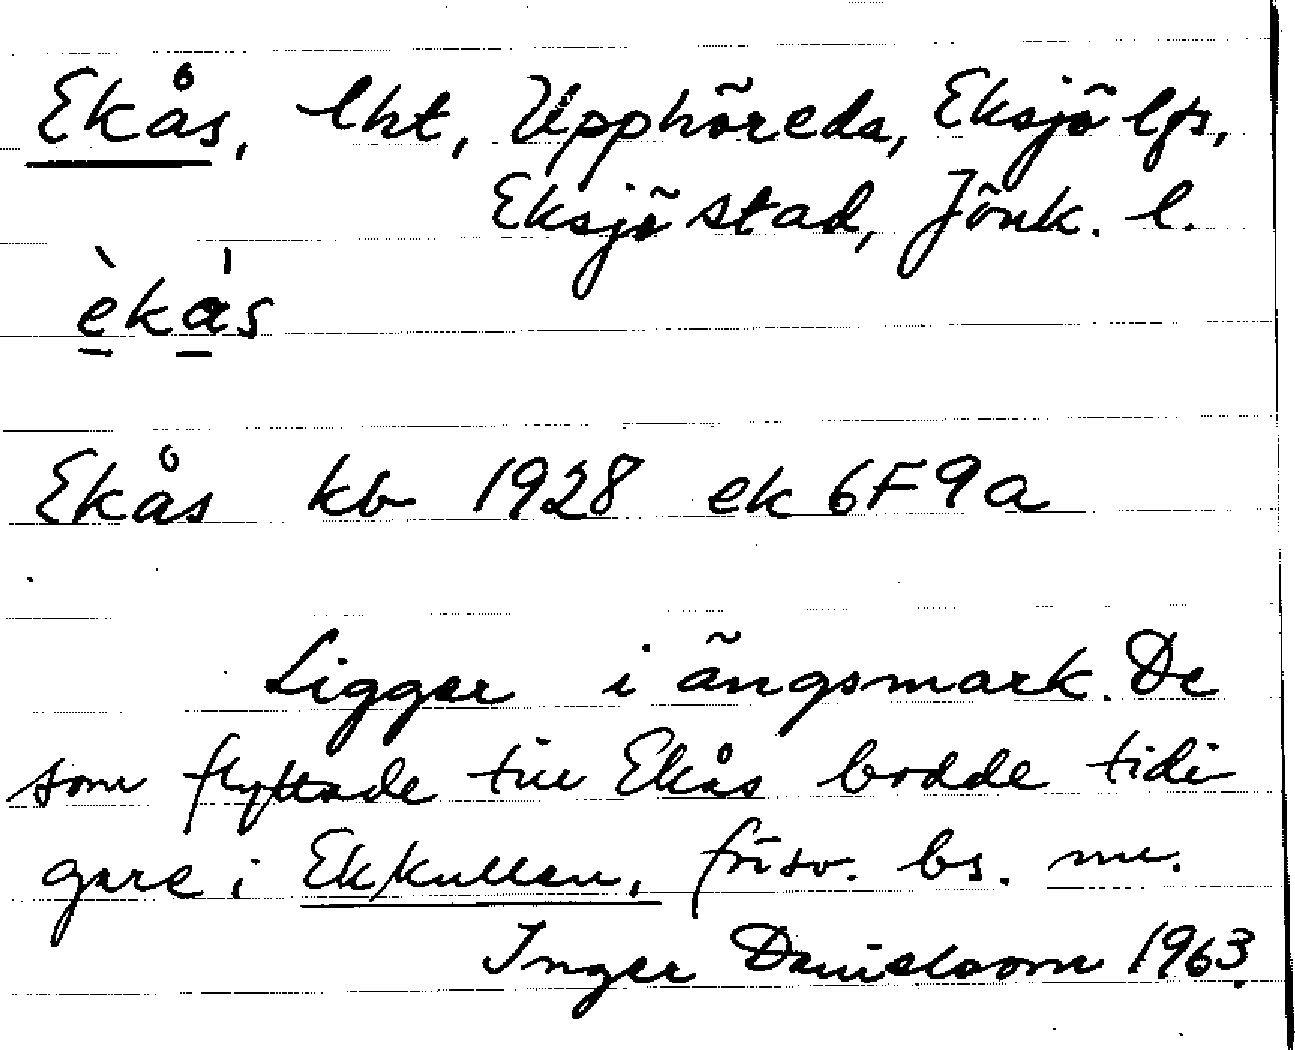 Ekås, lht, Upphöreda, Eksjö lfs,
Eksjö stad, Jönk. l.
èkás
Ekås kb 1928 ek 6F9a
Ligger i ängsmark. De
som flyttade till Ekås bodde tidi
gare i Ekkullen, försv. bs. nu.
Inger Danielsson 1963.